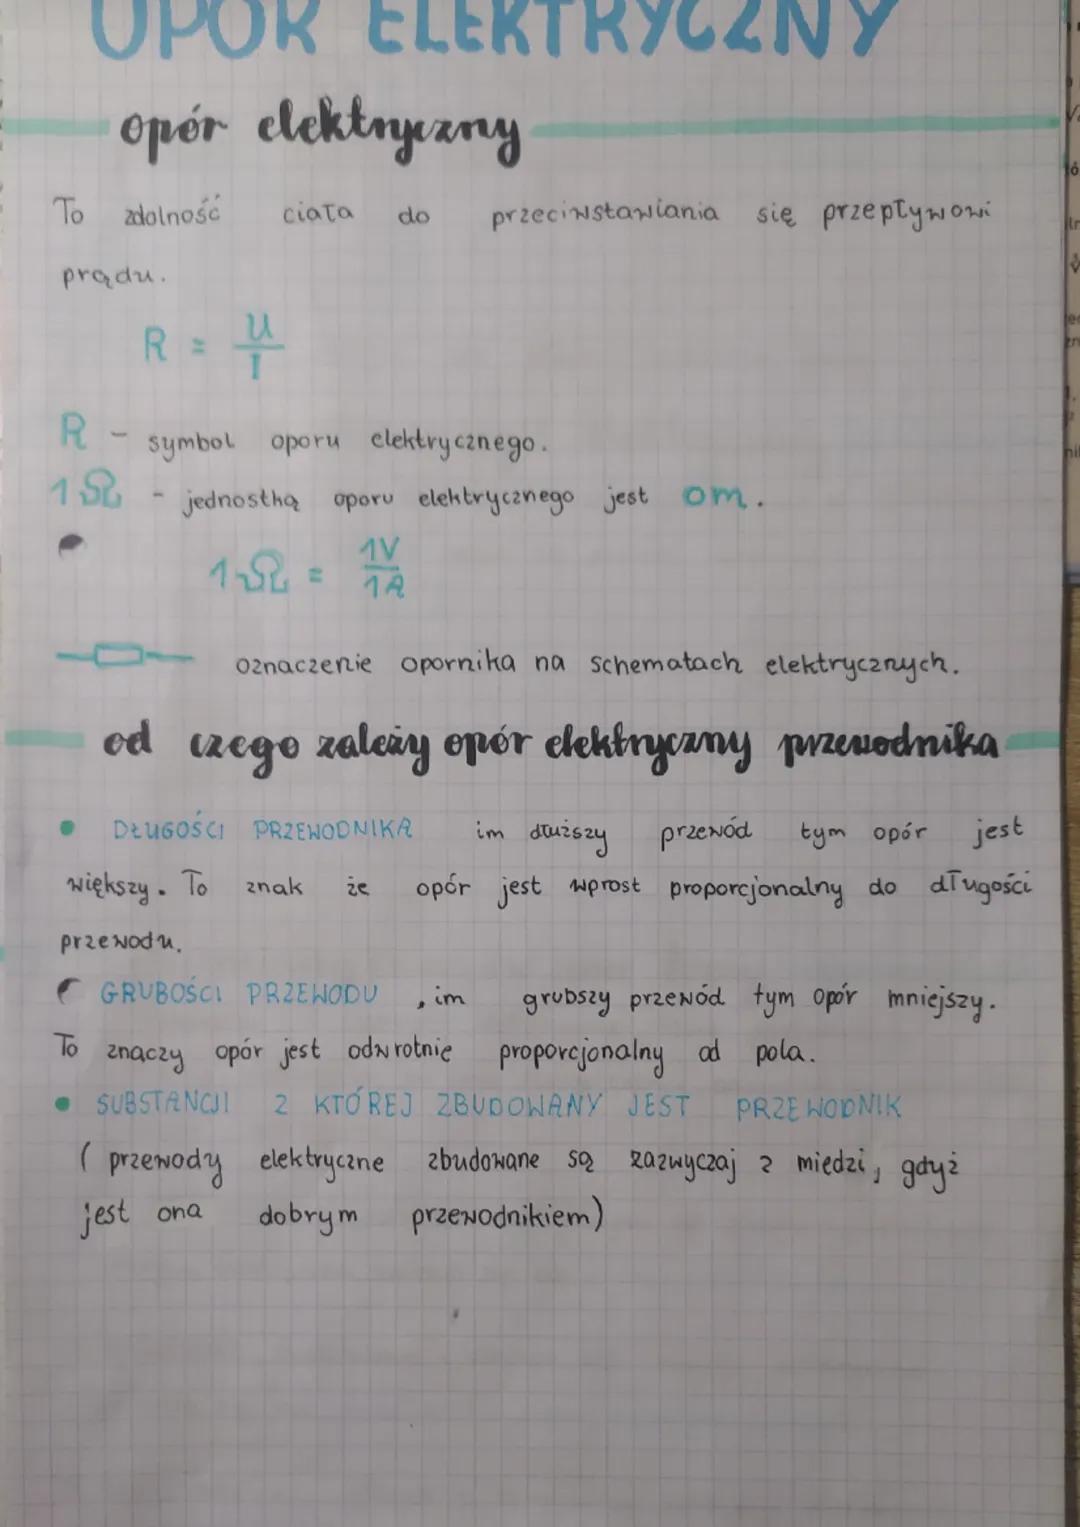 OPÓR ELEKTRYCZNY
opór elektryczny
To zdolność ciała do przeciwstawiania się przepływowi
prądu.
R = U/I
R - symbol oporu elektrycznego.
1Ω - jednostką oporu elektrycznego jest om.
1Ω = 1V/1A
oznaczenie opornika na schematach elektrycznych.
od czego zależy opór elektryczny przewodnika
• DŁUGOŚCI PRZEWODNIKA im dłuższy przewód tym opór jest
większy. To znak że opór jest wprost proporcjonalny do długości
przewodu.
• GRUBOŚCI PRZEWODU, im grubszy przewód tym opór mniejszy.
To znaczy opór jest odwrotnie proporcjonalny od pola.
• SUBSTANCJI Z KTÓREJ ZBUDOWANY JEST PRZEWODNIK
( przewody elektryczne zbudowane są zazwyczaj z miedzi, gdyż
jest ona dobrym przewodnikiem)